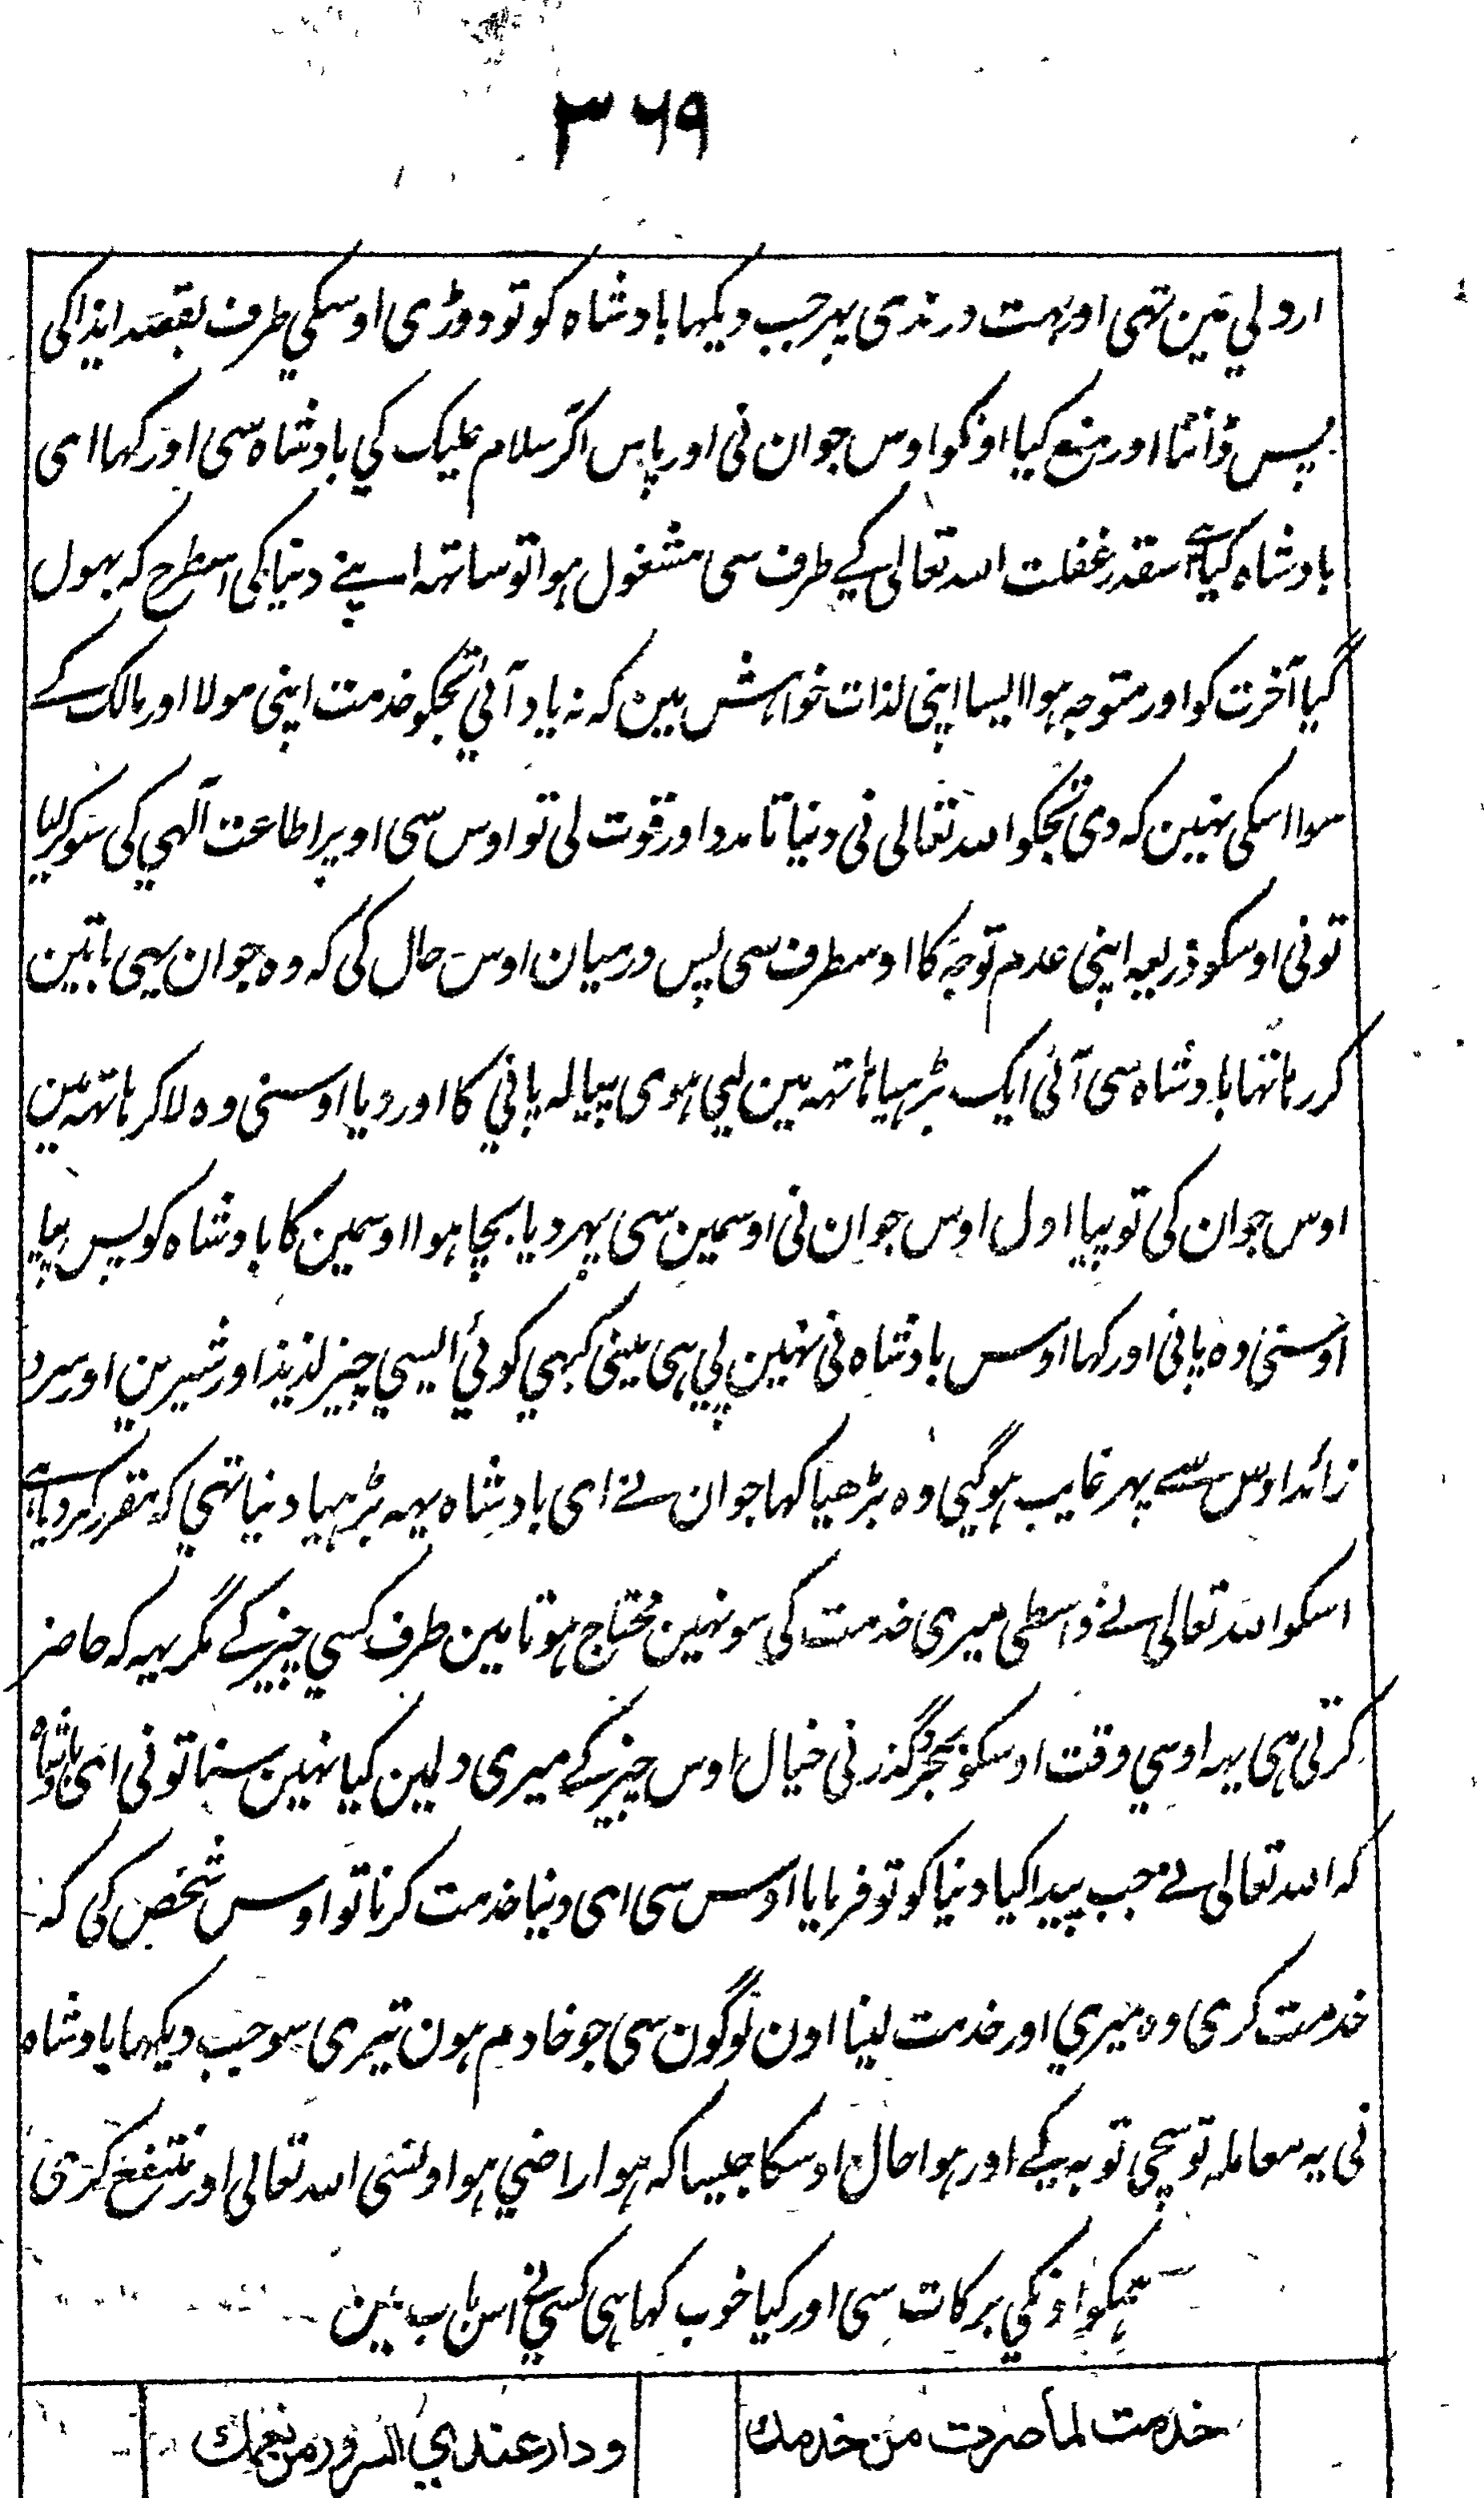 ۳۶۹
اردلي مین تہی اور بہت درندی پہر جب دیکہا بادشاہ کو تو دوڑی اوسکي طرف بقصد ایذا کی
پس ڈانٹا اور منع کیا اونکو اوس جوان نی اور پاس اکر سلام علیک کي بادشاہ سی اور کہا ای
بادشاہ کیا ہے اسقدر غفلت اللہ تعالی کے طرف سی مشغول ہوا تو ساتہہ اپنے دنیا کی اسطرح کہ بہول
گیا آخرت کو اور متوجہ ہوا ایسا اپنی لذات خواہش مین کہ نہ یاد آئي تجکو خدمت اپنی مولا اور مالک کے
سوا اسکی نہین کہ دی تجکو اللہ تعالی نی دنیا تا مدد اور قوت لی تو اوس سی اوپر اطاعت آلہي کی سو کر لیا
تو نی اوسکو ذریعہ اپنی عدم توجہ کا اوسطرف سی پس درمیان اوس حال کی کہ وہ جوان یہی باتین
کر رہا تہا بادشاہ سی آئی ایک بڑہیا ہاتہہ مین لیي ہوی پیالہ پانيکا اور دیا اوسنی وہ لا کر ہاتہہ مین
اوس جوان کی تو پیا اول اوس جوان نی اوسمین سی پہر دیا بچا ہوا اوسمین کا بادشاہ کو پس پیا
اوسنی وہ پانی اور کہا اوس بادشاہ نی نہین پي ہی مینی کبہي کوئي ایسي چیز لذیذ اور شیرین اور سرد
زائد اوس سے پہر غایب ہوگیي وہ بڑھیا کہا جوان نے ای بادشاہ یہہ بڑہیا دنیا تہي کہ مقرر کر دیا ہے
اسکو اللہ تعالی نے واسطی میری خدمت کی سو نہین محتاج ہوتا مین طرف کسي چیز کے مگر یہہ کہ حاضر
کرتی ہی یہہ اوسي وقت اوسکو بمجرد گذرنی خیال اوس چیز کے میری دلمین کیا نہین سنا تو نی ای بادشاہ
کہ اللہ تعالی نے جب پیدا کیا دنیا کو تو فرمایا اوس سی ای دنیا خدمت کرنا تو اوس شخص کی کہ
خدمت کری وہ میري اور خدمت لینا اون لوگون سی جو خادم ہون تیری سو جب دیکہا بادشاہ
نی یہ معاملہ تو سچی توبہ کے اور ہوا حال اوسکا جیسا کہ ہوا راضي ہو اوںسی اللہ تعالی اور منتفع کری
ہمکو اونکي برکات سی اور کیا خوب کہا ہی کسي نے اس باب مین
خدمت لما صرت من خدمك
ودار عندي السرور من نعمك